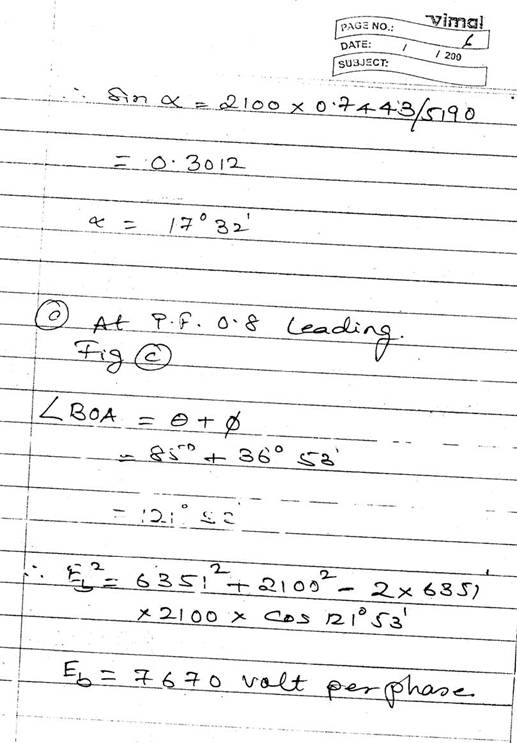 vimal
PAGE NO.: 6
DATE: / / 200
SUBJECT:
∴ Sin α = 2100 × 0.7443/5190
= 0.3012
α = 17° 32'
(c) At P.F. 0.8 leading.
Fig (c)
∠BOA = θ + ϕ
= 85° + 36° 53'
= 121° 53'
∴ E_b² = 6351² + 2100² - 2 × 6351
× 2100 × cos 121° 53'
E_b = 7670 volt per phase.